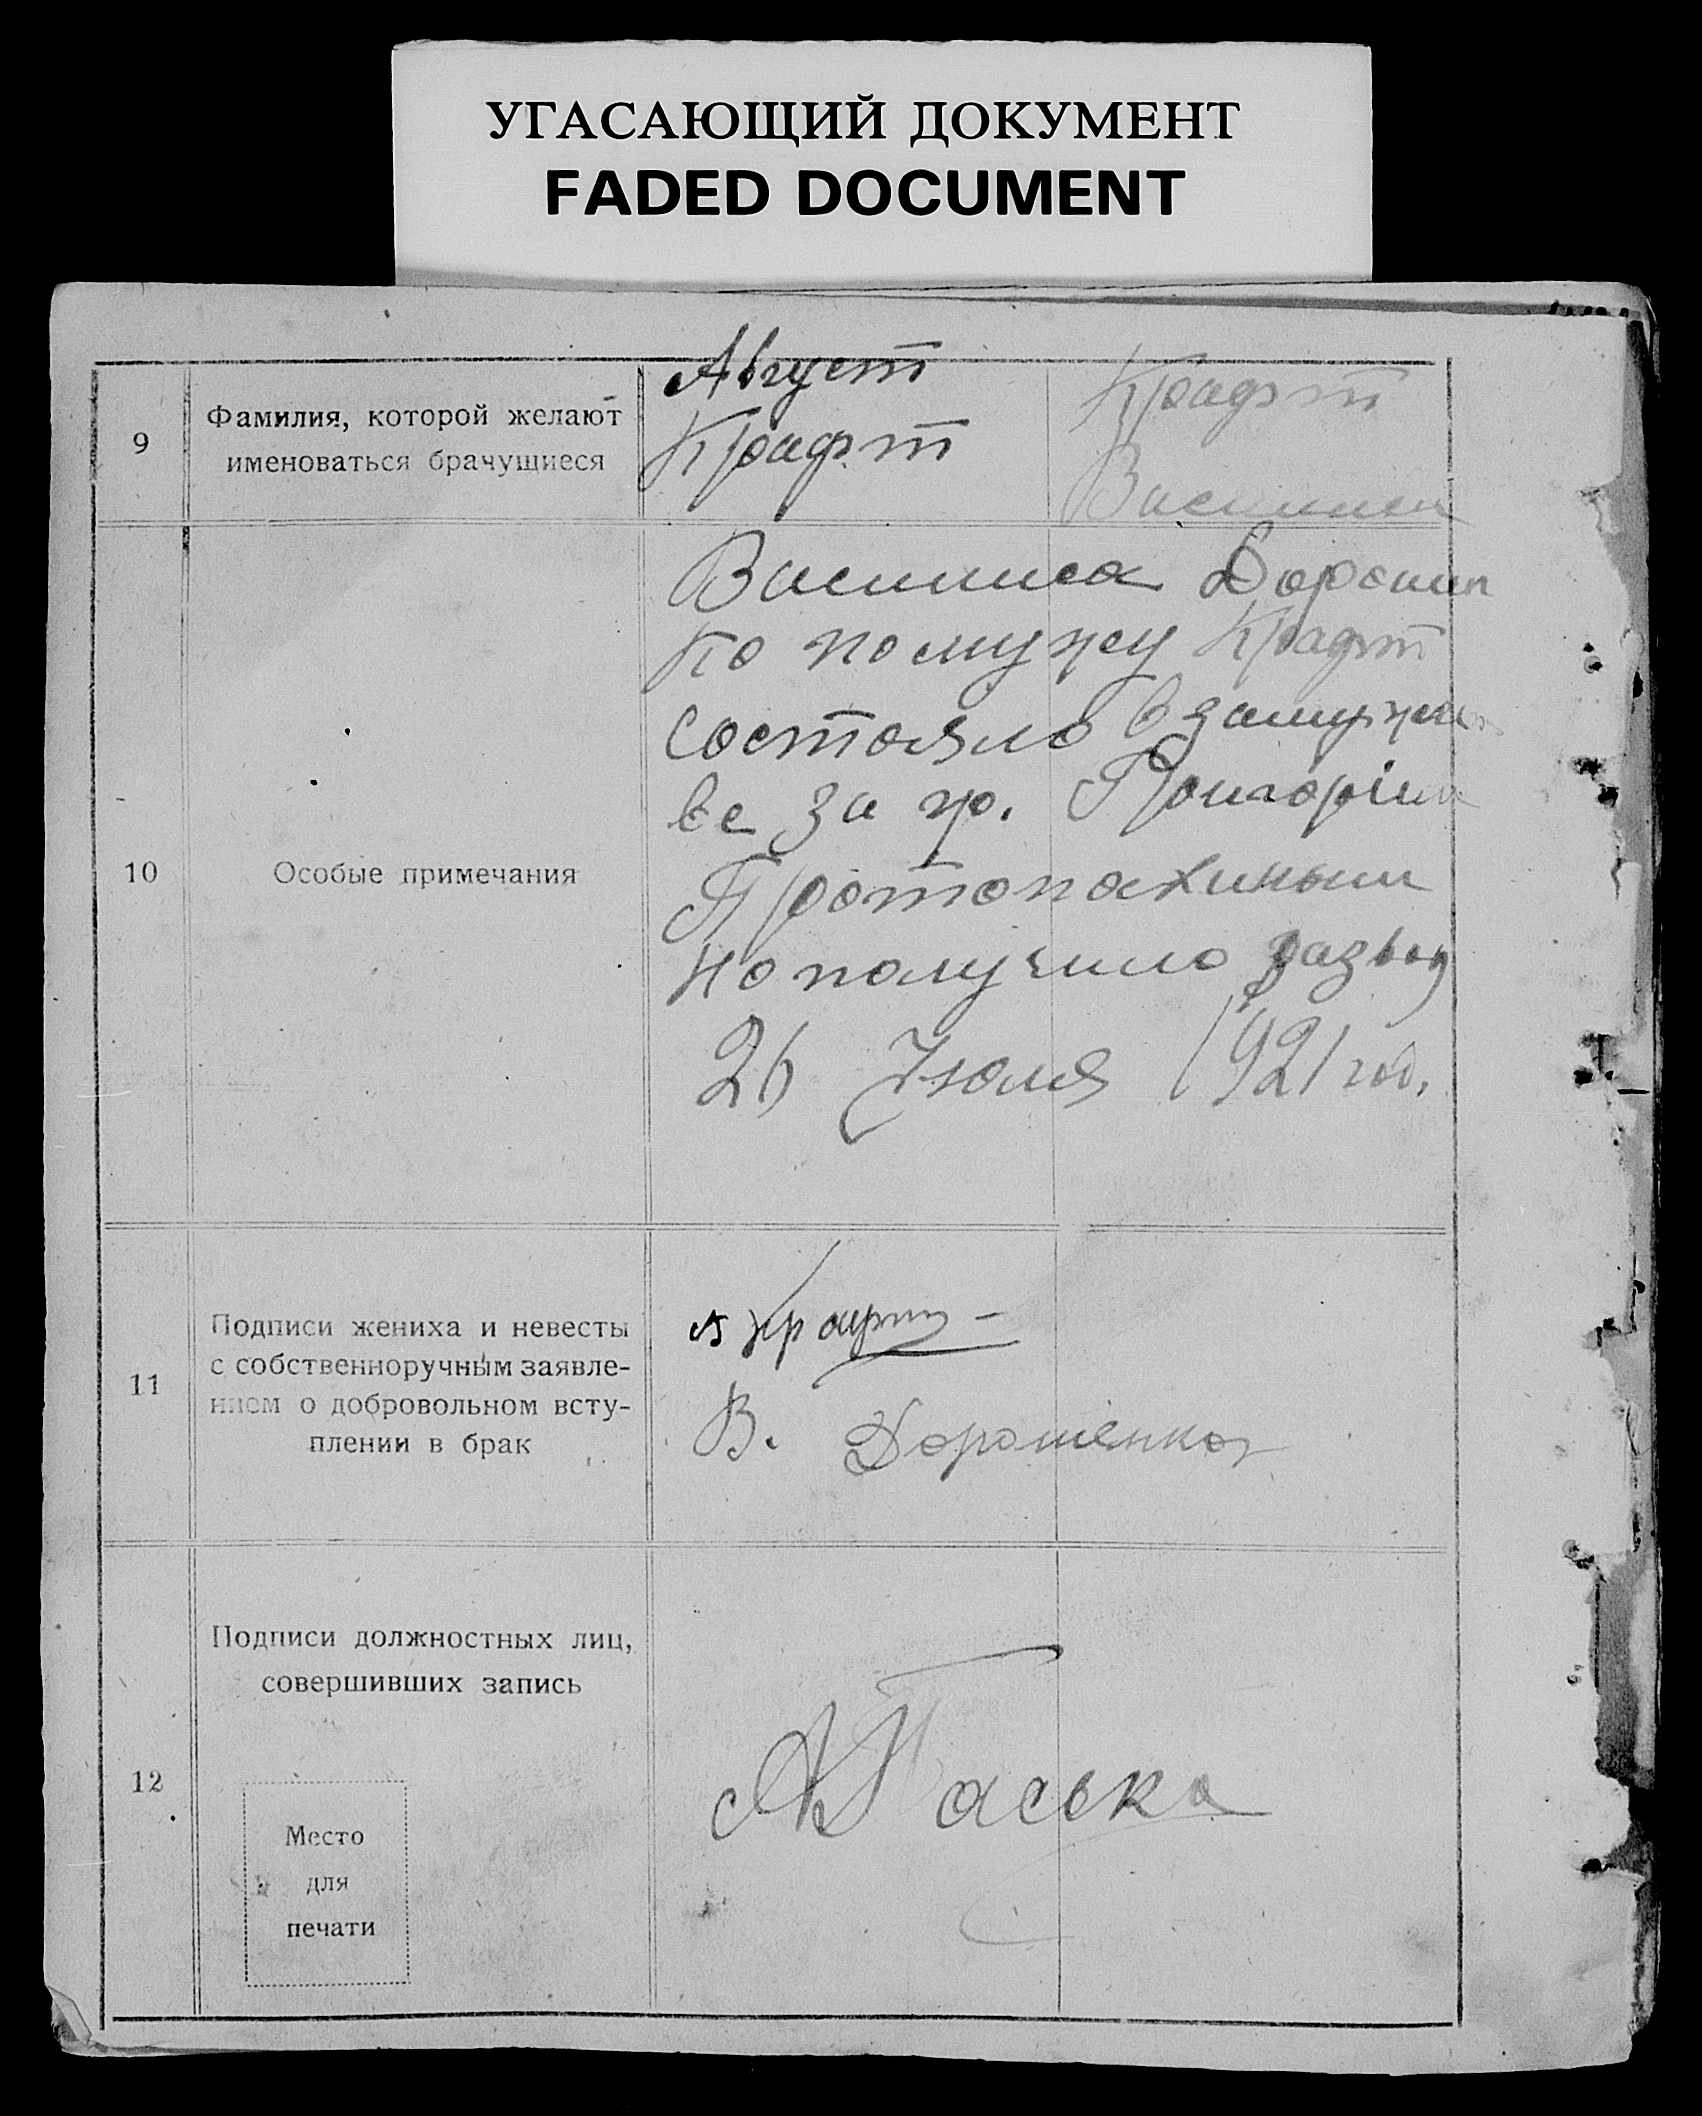 УГАСАЮЩИЙ ДОКУМЕНТ
FADED DOCUMENT
9
Фамилия, которой желают
именоваться брачущиеся
Август
Крафт
Крафт
Василиса
10
Особые примечания
Василиса Дорошен
ко по мужу Крафт
состояло в замужес
ве за гр. Григорiем
Протопахиным
но получило развод
26 Июля 1921 год.
11
Подписи жениха и невесты
с собственноручным заявле-
нием о добровольном всту-
плении в брак
А Крафт
В. Дорошенко
12
Подписи должностных лиц,
совершивших запись
Место
для
печати